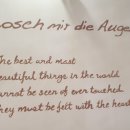 losch mir die Auge
The best and most
beautiful things in the world
cannot be seen of ever touched
They must be felt with the heart